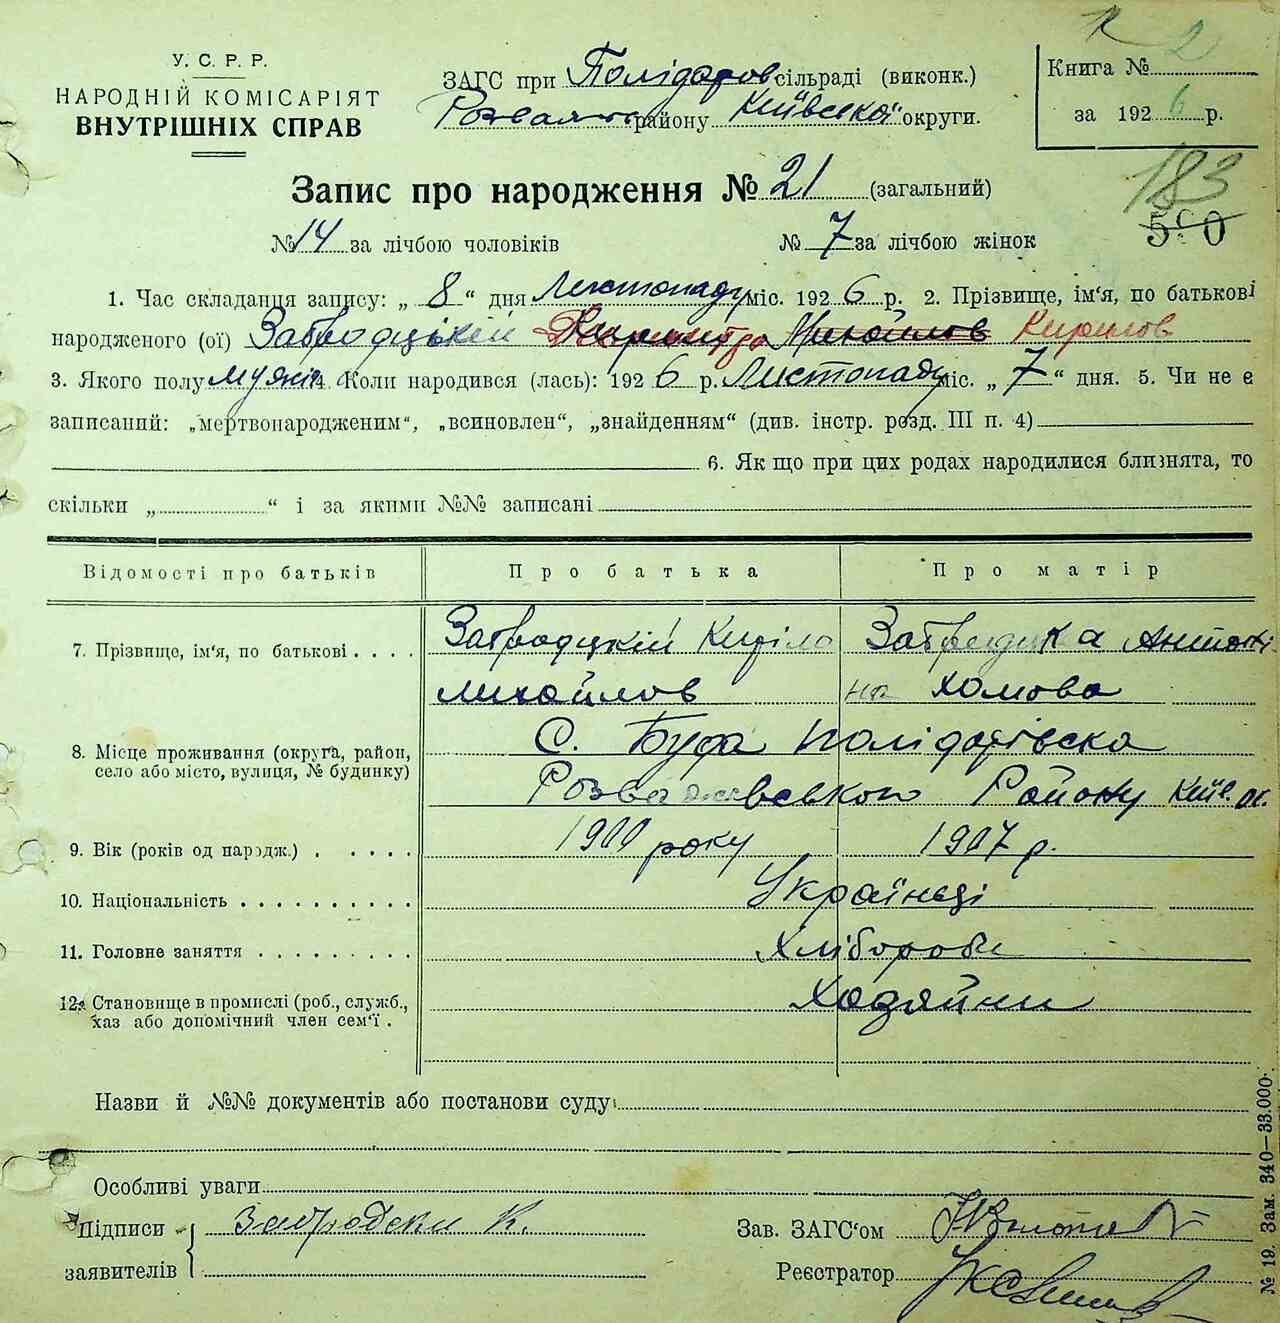 К 2
У. С. Р. Р.
НАРОДНІЙ КОМІСАРІЯТ
ВНУТРІШНІХ СПРАВ
ЗАГС при Полідаров сільраді (виконк.)
Розважів району Київської округи.
Книга №
за 1926 р.
Запис про народження № 21 (загальний)
183
590
№ 14 за лічбою чоловіків № 7 за лічбою жінок
1. Час складання запису: „ 8 “ дня Листопаду міс. 1926 р. 2. Прізвище, ім'я, по батькові
народженого (ої) Забродцькій Михайлов Кирилов
3. Якого полу мужск 4. Коли народився (лась): 1926 р. Листопаду міс. „ 7 “ дня. 5. Чи не є
записаний: „мертвонародженим“, „всиновлен“, „знайденням“ (див. інстр. розд. III п. 4)
6. Як що при цих родах народилися близнята, то
скільки „ “ і за якими №№ записані
Відомості про батьків Про батька Про матір
7. Прізвище, ім'я, по батькові Забродцкій Киріло Забродцка Антоні
Михайлов на Хомова
8. Місце проживання (округа, район, С. Буда Полідарівска
село або місто, вулиця, № будинку) Розважевського Району Київ. ок.
9. Вік (років од нарэдж.) 1900 року 1907 р.
10. Національність Українці
11. Головне заняття Хлібороби
12. Становище в промислі (роб., служб., Ходяйни
хаз або допомічний член сем'ї.
Назви й №№ документів або постанови суду
Особливі уваги
Підписи Забродски К. Зав. ЗАГС'ом
заявителів Реєстратор
№ 19. Зам. 340—33.000.